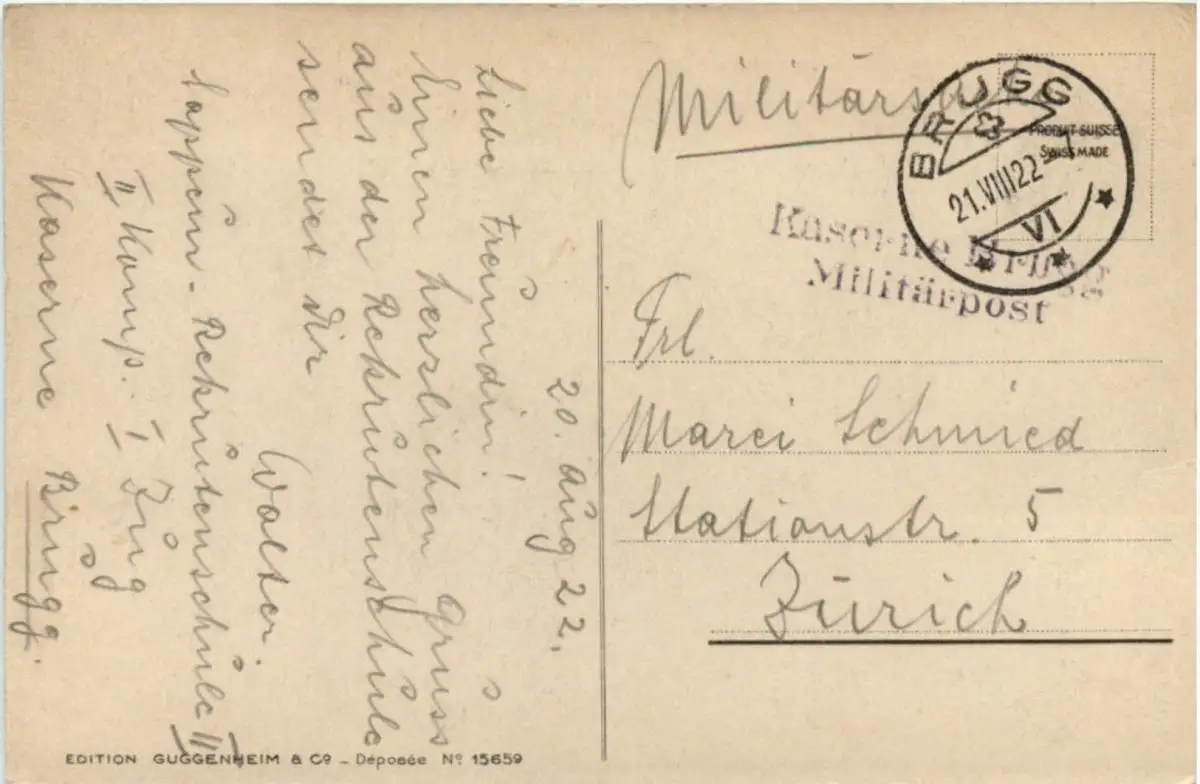 20. Aug 22.
Liebe Freundin!
Einen herzlichen Gruss
aus der Rekrutenschule
sendet dir
Walter.
Sappeur-Rekrutenschule II
II Komp. I Zug
Kaserne Brugg.
EDITION GUGGENHEIM & Co - Déposée No 15659
BRUGG
21.VIII22-7
VI
PRODUIT SUISSE
SWISS MADE
Kaserne Brugg
Militärpost
Frl.
Marci Schmied
Stationstr. 5
Zürich